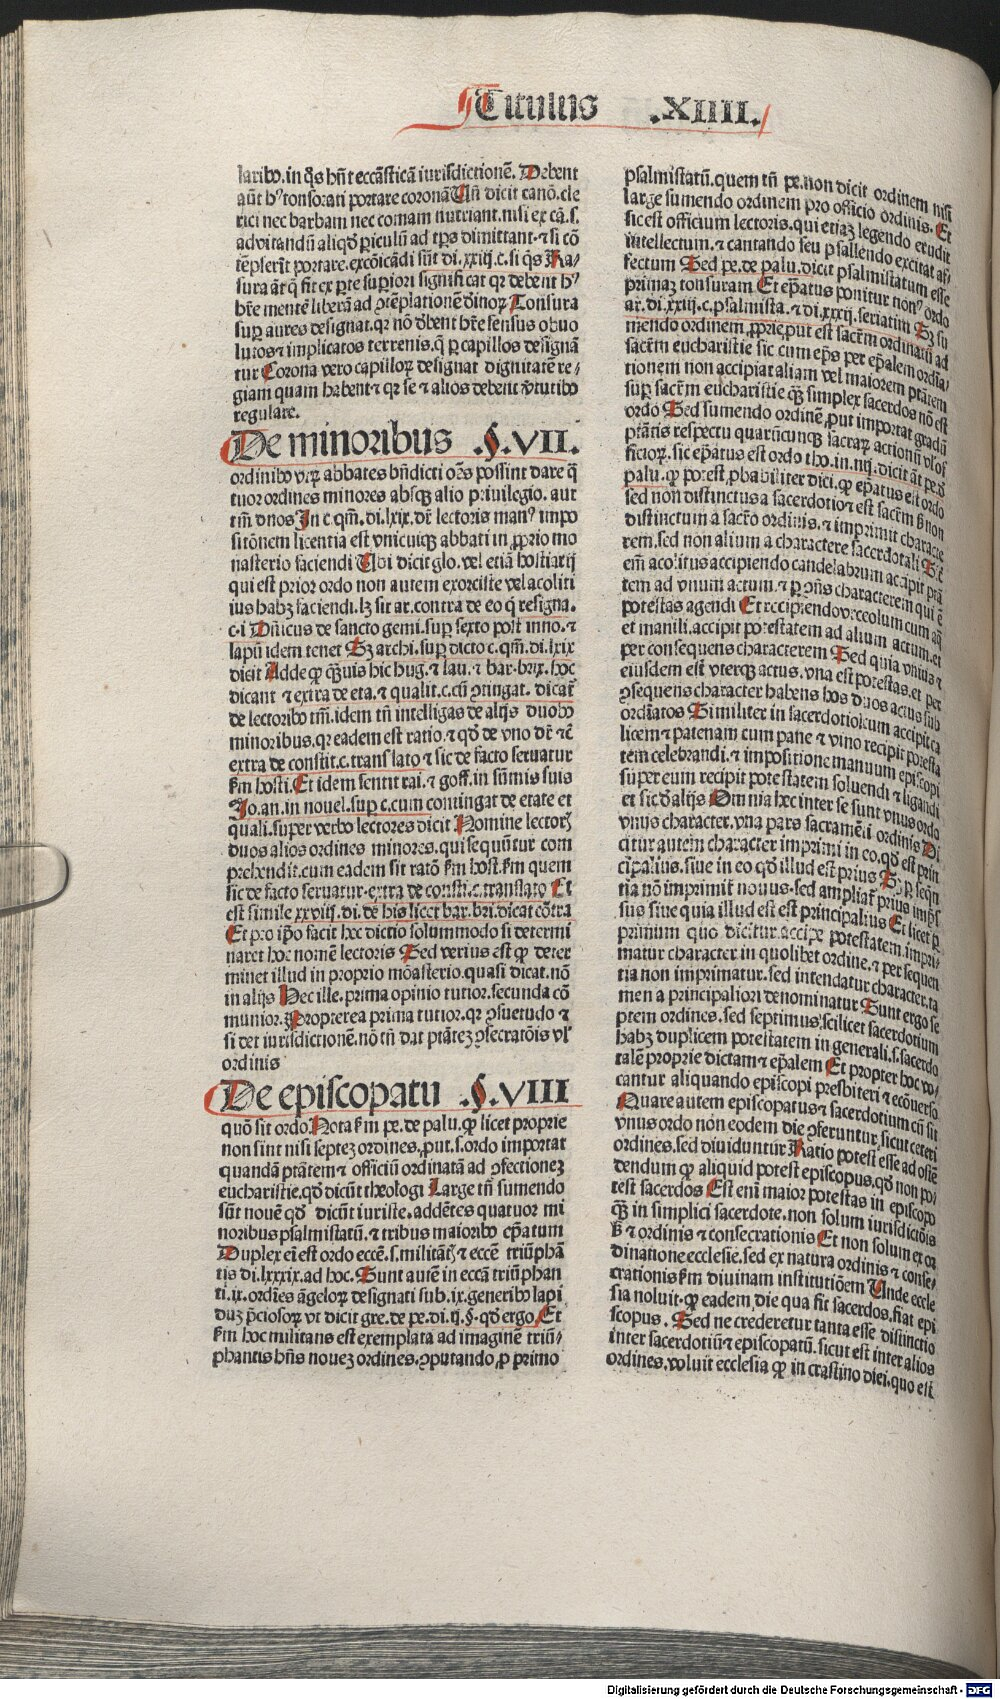 Titulus .XIIII.
laribꝰ. in q̃s hñt eccãsticã iurisdictionẽ. Debent
aũt hꝰ tonsorati portare coronã Uñ dicit canõ. cle
rici nec barbam nec comam nutriant. nisi ex cã. s.
ad vitandũ aliqđ ꝑiculũ ad tp̃s dimittant. ⁊ si cõ
tẽpserĩt portare. excõicãdi sũt di. xxiij. c. si q̃s Ra/
sura ãt q̃ fit ex ꝑte suꝑiori significat qꝛ debent hꝰ
bře mentẽ liberã ad ꝯtẽplationẽ diuinoꝝ Tonsura
suꝑ aures designat. qꝛ nõ đbent bře sensus obuo
lutos ⁊ implicatos terrenis. q̃ ꝑ capillos designã
tur Corona vero capilloꝝ designat dignitatẽ re/
giam quam habent ⁊ qꝛ se ⁊ alios debent v̓tutibꝰ
regulare.
De minoribus .§.VII.
ordinibꝰ vtꝝ abbates bñdicti oẽs possint dare q̃
tuor ordines minores absqꝫ alio priuilegio. aut
tm̃ duos In c. qm̃. di. lxix. dř lectoris manꝰ impo
sitõnem licentia est vnicuiqꝫ abbati in ꝓprio mo
nasterio faciendi Ubi dicit glo. vel etiã hostiarij
qui est prior ordo non autem exorciste vel acoliti
ius habꝫ faciendi. lꝫ sit ar. contra de eo q̃ resigna.
c. i Dñicus de sancto gemi. suꝑ sexto post inno. ⁊
lapũ idem tenet Sꝫ archi. suꝑ dicto c. qm̃. di. lxix
dicit Adde ꝙ q̃uis hic hug. ⁊ lau. ⁊ bar. brix. hoc
dicant ⁊ extra de eta. ⁊ qualit. c. cũ ꝯtingat. dicat̃
de lectoribꝰ tm̃. idem tñ intelligas de alijs duobꝰ
minoribus. qꝛ eadem est ratio. ⁊ qđ de vno dř ⁊c̃
extra de constit. c. translato ⁊ sic de facto seruatur
ẜm hosti. Et idem sentit rai. ⁊ goff. in sũmis suis
Jo. an. in nouel. suꝑ c. cum contingat de etate et
quali. super verbo lectores dicit Nomine lectorꝝ
duos alios ordines minores. qui sequũtur com
prehendit. cum eadem sit ratõ ẜm host. ẜm quem
sic de facto seruatur. extra de consti. c. translato Et
est simile xxviij. di. de his licet bar. bri. dicat cõtra
Et pro ip̃o facit hec dictio solummodo si determi
naret hoc nomẽ lectoris Sed verius est ꝙ deter
minet illud in proprio mõasterio. quasi dicat. nõ
in alijs Hec ille. prima opinio tutior. secunda cõ
munior. Propterea prima tutior. qꝛ ꝯsuetudo ⁊
si det iurisdictionẽ. nõ tñ dat ptãteꝫ ꝯsecratõis vl̓
ordinis
De episcopatu .§.VIII
quõ sit ordo. Nota ẜm pe. de palu. ꝙ licet proprie
non sint nisi septeꝫ ordines, put. s. ordo importat
quandã ptãtem ⁊ officiũ ordinatã ad ꝯfectioneꝫ
eucharistie. qđ dicũt theologi Large tñ sumendo
sũt nouẽ qđ dicũt iuriste. addẽtes quatuor mi
noribus psalmistatũ. ⁊ tribus maioribꝰ ep̃atum
Duplex em̃ est ordo ecce̓. s. militãtꝭ ⁊ ecce̓ triũphã
tis di. lxxxix. ad hoc. Sunt autẽ in eccã triũphan
ti. ix. ordĩes ãgeloꝝ designati sub. ix. generibꝰ lapi
duꝫ p̃cioloꝝ vt dicit gre. de pe. di. ij. §. qđ ergo. Et
ẜm hoc militans est exemplata ad imaginẽ triũ/
phantis hñs noueꝫ ordines. ꝯputando ꝓ primo
psalmistatũ. quem tñ pe. non dicit ordinem nisi
large sumendo ordinem pro officio ordinis. Et
sic est officium lectoris. qui etiaꝫ legendo erudit
intellectum. ⁊ cantando seu psallendo excitat af/
fectum Sed pe. de palu. dicit psalmistatum esse
primaꝫ tonsuram Et ep̃atus ponitur nonꝰ ordo
ar. di. xxiij. c. psalmista. ⁊ di. xxxij. seriatim Sꝫ su
mendo ordinem ꝓprie. put est sacr̃m ordinatũ ad
sacr̃m eucharistie sic cum ep̃s per ep̃alem ordĩa/
tionem non accipiat aliam vel maiorem ptãtem
suꝑ sacr̃m eucharistie q̃ꝫ simplex sacerdos nõ est
ordo Sed sumendo ordinẽ, put importat gradũ
ptãtis respectu quarũcunqꝫ sacraꝝ actionũ vl̓ of
ficioꝝ. sic ep̃atus est ordo tho. in. iiij. dicit ãt pe. đ
palu. ꝙ potest ꝓbabiliter dici. ꝙ ep̃atus est ordo
sed non distinctus a sacerdotio ⁊ est sacr̃m ß non
distinctum a sacr̃o ordinis. ⁊ imprimit characte
rem. sed non alium a charactere sacerdotali Sic̃
em̃ acolitus accipiendo candelabrum accipit ptã
tem ad vnum actum. ⁊ ꝑ ꝯñs characterem qui ẽ
potestas agendi Et recipiendo vrceolum cum aq̃
et manili. accipit potestatem ad alium actum. et
per consequens characterem Sed quia vnius ⁊
eiusdem est vterqꝫ actus. vna est potestas. et per
ꝯsequens character habens hos duos actus sub
ordĩatos Similiter in sacerdotio cum accipit ca
licem ⁊ patenam cum pane ⁊ vino recipit potesta
tem celebrandi. ⁊ impositione manuum episcopi
super eum recipit potestatem soluendi ⁊ ligandi
et sic đ alijs Omnia hec inter se sunt vnus ordo
vnus character. vna pars sacramẽti ordinis Di
citur autem character imprimi in eo. qđ est prin
cipalius. siue in eo qđ illud est prius Sꝫ ꝑ seq̃n
tia nõ imprimit̃ nouus. sed ampliat̃ prius imp̃s
sus siue quia illud est est principalius Et licet ꝑ
primum quo dicitur. accipe potestatem. impri/
matur character in quolibet ordine. ⁊ per sequen
tia non imprimatur. sed intendatur character. ta
men a principaliori denominatur Sunt ergo se
ptem ordines. sed septimus. scilicet sacerdotium
habꝫ duplicem potestatem in generali. s. sacerdo
talẽ proprie dictam ⁊ ep̃alem Et propter hoc vo/
cantur aliquando episcopi presbiteri ⁊ ecõuerso
Quare autem episcopatus ⁊ sacerdotium cũ sit
vnus ordo non eodem die ꝯferuntur. sicut ceteri
ordines. sed diuiduntur Ratio potest esse ad oñe
dendum ꝙ aliquid potest episcopus. qđ non po/
test sacerdos Est em̃ maior potestas in episcopo
q̃ꝫ in simplici sacerdote. non solum iurisdictiõis
ß ⁊ ordinis ⁊ consecrationis Et non solum ex or
dinatione ecclesie. sed ex natura ordinis ⁊ conse/
crationis ẜm diuinam institutiõem Unde eccle
sia noluit. ꝙ eadem die qua fit sacerdos. fiat epi
scopus. Sed ne crederetur tanta esse distinctio
inter sacerdotiũ ⁊ episcopatũ. sicut est inter alios
ordines. voluit ecclesia ꝙ in crastino diei. quo est
Digitalisierung gefördert durch die Deutsche Forschungsgemeinschaft - DFG